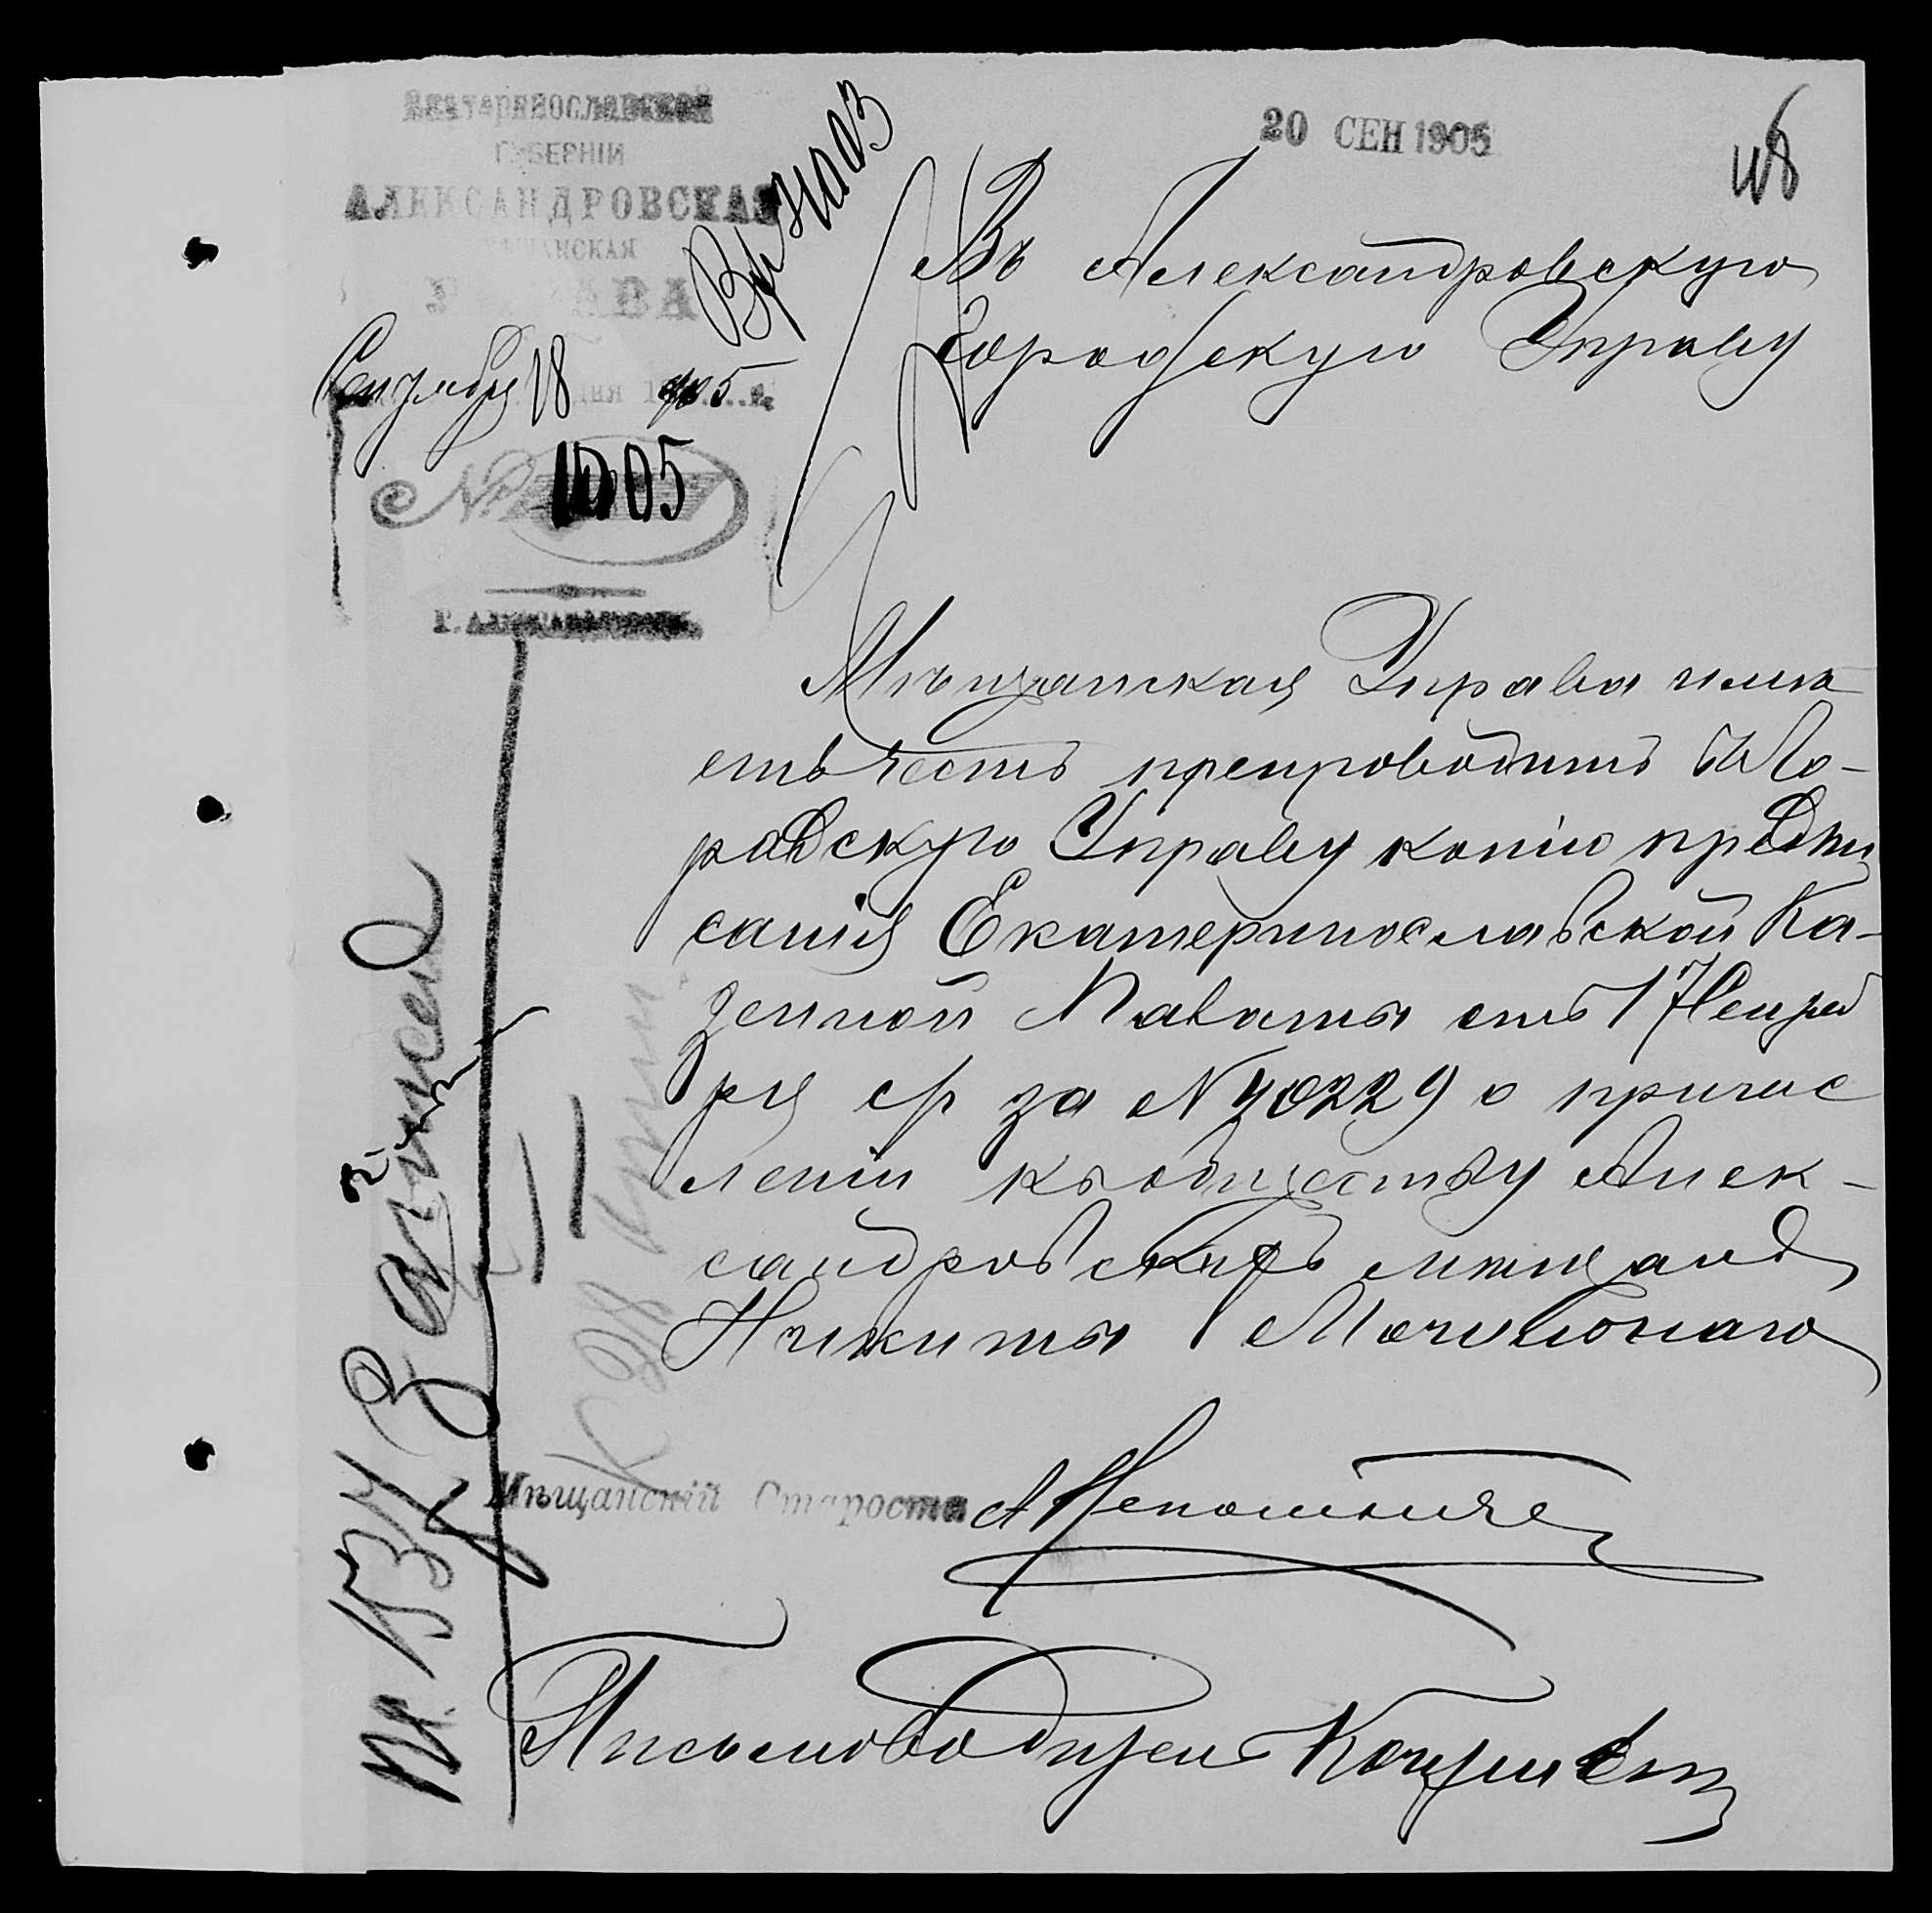 Екатеринославской
ГУБЕРНІИ
АЛЕКСАНДРОВСКАЯ
МѢЩАНСКАЯ
УПРАВА
Сентября 18 дня 1905 г.
№ 1005
Г. АЛЕКСАНДРОВСКЪ
20 СЕН 1905
Въ Александровскую
Городскую Управу
Мѣщанская Управа имѣ-
етъ честь препроводить въ Го-
родскую Управу копію предпи
санія Екатеринославской Ка-
зенной Палаты отъ 17 Сентяб
ря с/г за № 40229 о причис
леніи къ обществу Алек-
сандровскихъ мѣщанъ
Никиты
Мѣщанскій Староста
Письмоводитель